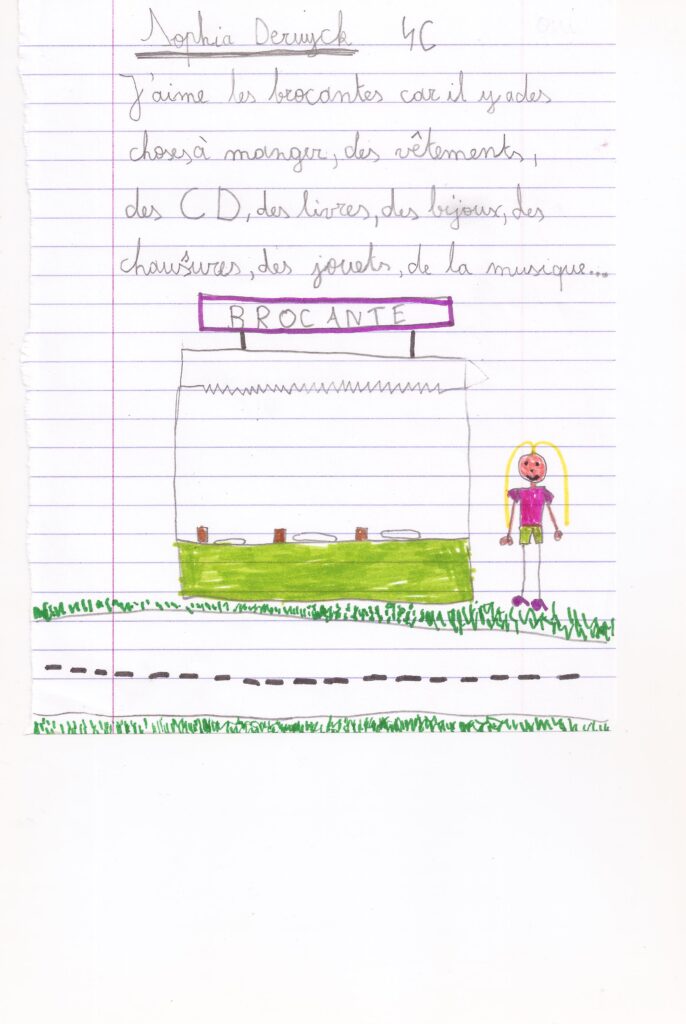 Sophia Deruyck 4C
J'aime les brocantes car il y a des
choses à manger, des vêtements,
des CD, des livres, des bijoux, des
chaussures, des jouets, de la musique...
BROCANTE